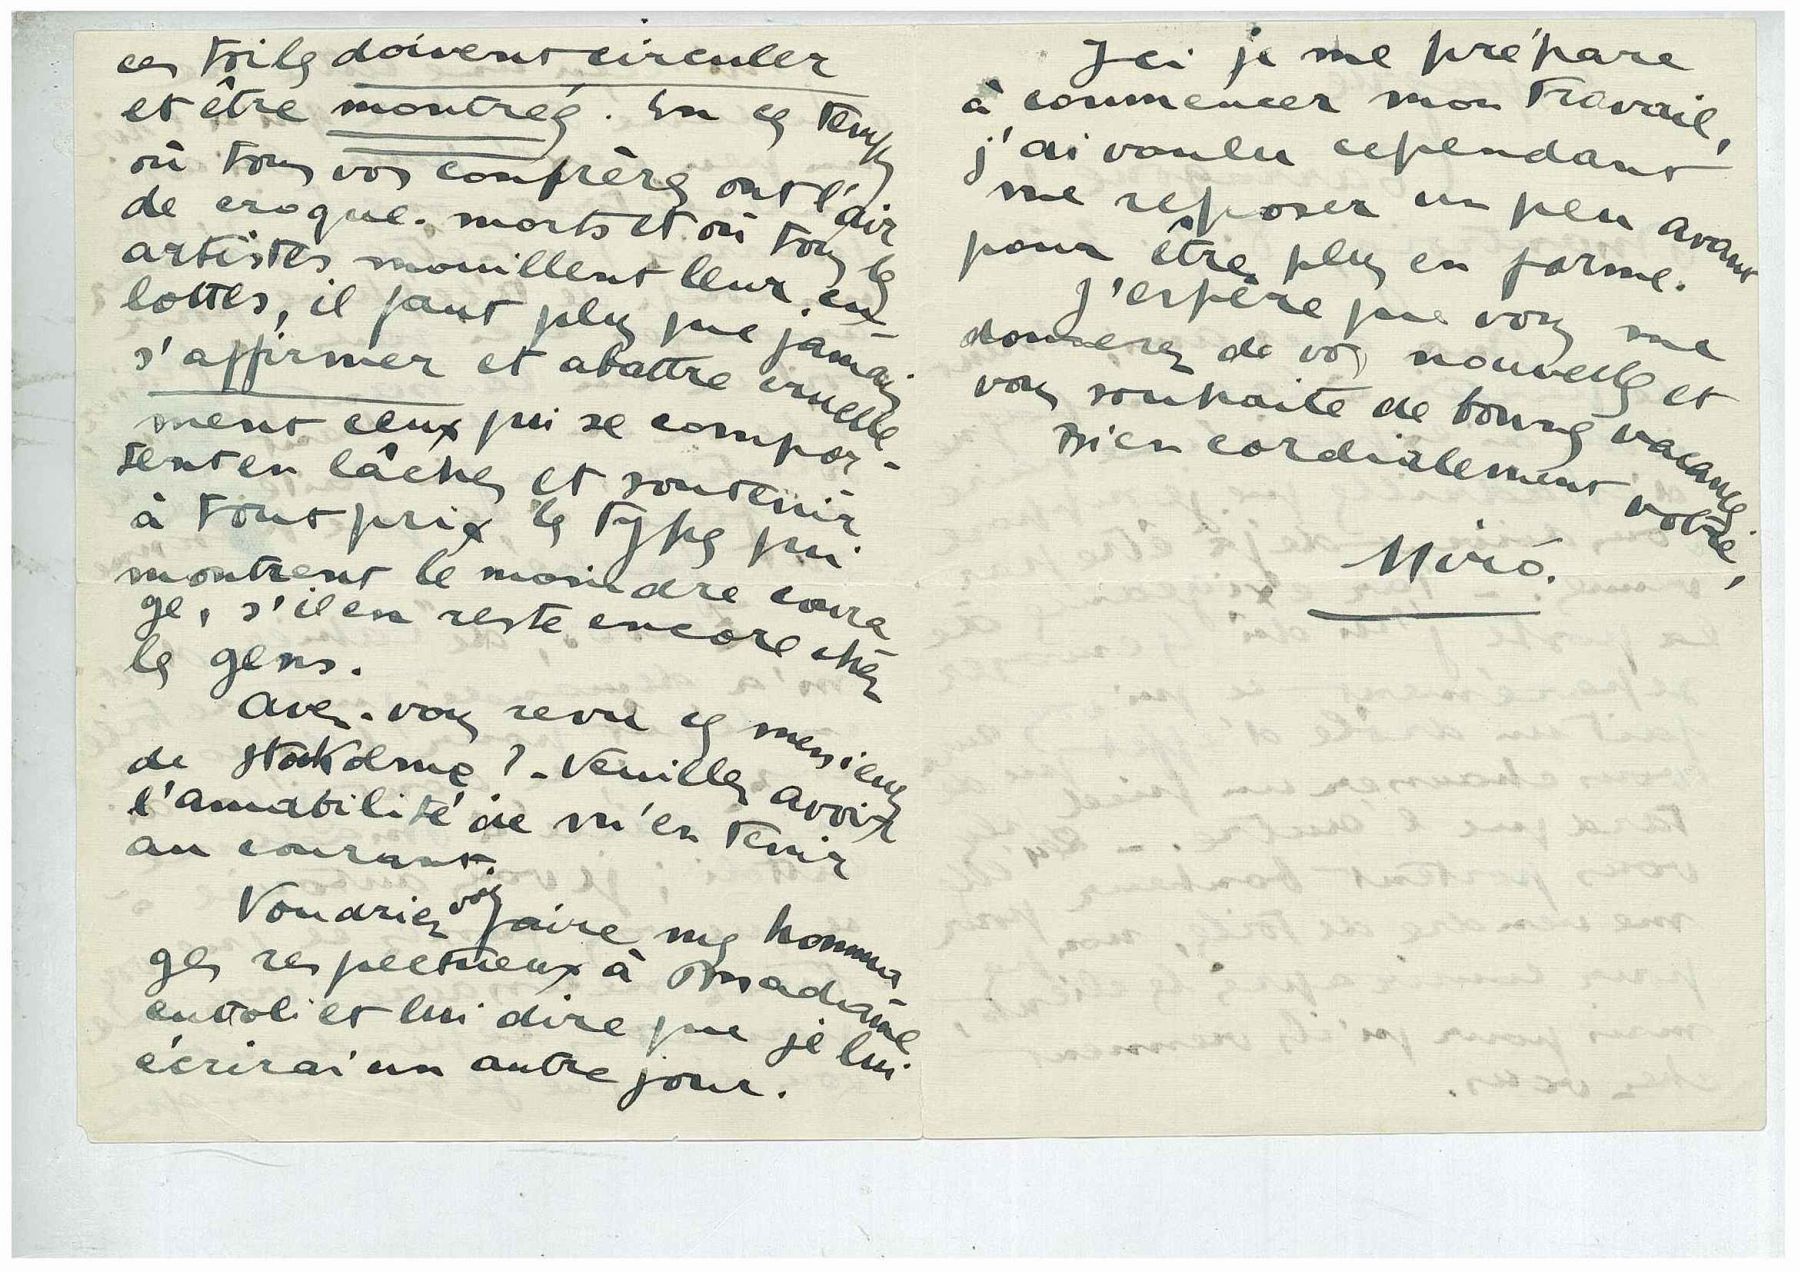 ces toiles doivent circuler
et être montrés. En ces temps
où tous vos confrères ont l'air
de croque-morts et où tous les
artistes mouillent leur cu-
lottes, il faut plus que jamais
s'affirmer et abattre cruelle-
ment ceux qui se compor-
tent en lâches et soutenir
à tout prix les types qui
montrent le moindre coura
ge, s'il en reste encore chez
les gens.
Avez-vous revu ces messieurs
de ? - Veuillez avoir
l'amabilité de m'en tenir
au courant.
Voudriez vous faire mes homma
ges respectueux à Madame
et lui dire que je lui
écrirai un autre jour.
Ici je me prépare
à commencer mon travail,
j'ai voulu cependant
me reposer un peu avant
pour être plus en forme.
J'espère que vous me
donnerez de vos nouvelles et
vous souhaite de bonnes vacances
Bien cordialement votre,
Miró.